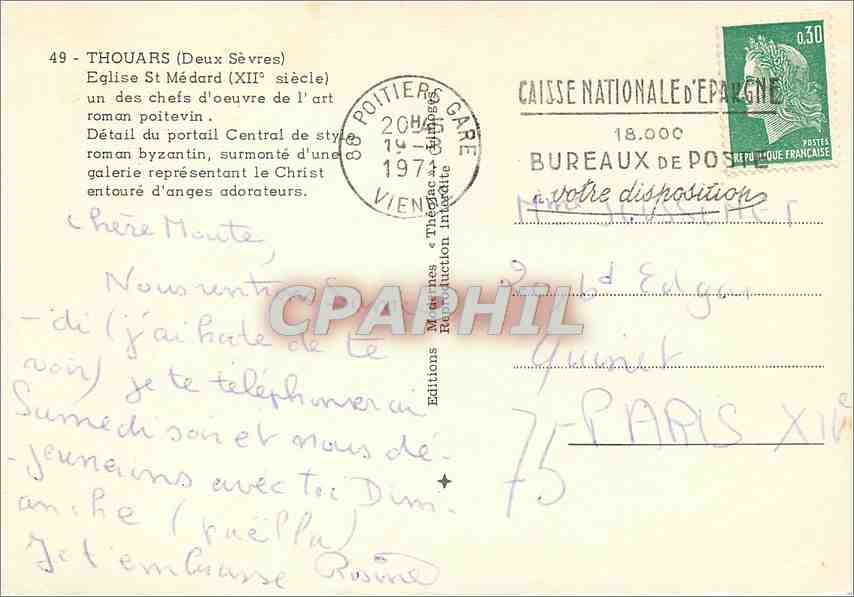 49 - THOUARS (Deux Sèvres)
Eglise St Médard (XII° siècle)
un des chefs d'oeuvre de l'art
roman poitevin.
Détail du portail Central de style
roman byzantin, surmonté d'une
galerie représentant le Christ
entouré d'anges adorateurs.
88 POITIERS GARE
1971
VIENNE
CAISSE NATIONALE D'EPARGNE
18.000
BUREAUX DE POSTE
à votre disposition
0,30
POSTES
REPUBLIQUE FRANÇAISE
Editions Modernes « Théojac », Limoges
Reproduction interdite
chère Moute,
Nous rentrons
-di (j'ai hate de te
voir) je te téléphonerai
Samedi soir et nous dé-
-jeunerons avec toi Dim-
anche (paëlla)
Je t'embrasse Rosine
Mme
bd Edgar
Quinet
75 - PARIS XIVe
CPAPHIL